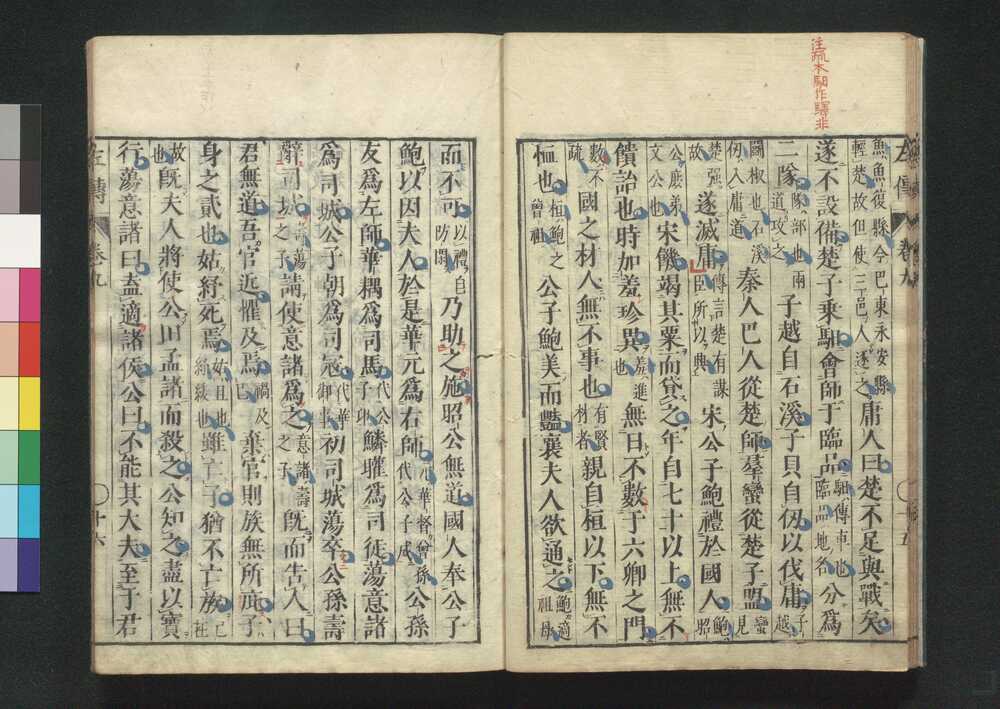 注疏本馹作驛非
魚魚復縣今巴東永安縣輕楚故但使三邑人遂之庸人曰楚不足與戰矣
遂不設備楚子乘馹會師于臨品馹傳車也臨品地名分為
二隊隊部也兩道攻之子越自石溪子貝自仞以伐庸子越
鬬椒也石溪仞入庸道秦人巴人從楚師羣蠻從楚子盟蠻見
楚强故遂滅庸傳言楚有謀臣所以興宋公子鮑禮於國人鮑昭
公庶弟文公也宋饑竭其粟而貸之年自七十以上無不
饋詒也時加羞珍異羞進也無日不數于六卿之門
數不疏國之材人無不事也有賢材者親自桓以下無不
恤也桓鮑之曾祖公子鮑美而豔襄夫人欲通之鮑適祖母
而不可以禮自防閑乃助之施昭公無道國人奉公子
鮑以因夫人於是華元為右師元華督曾孫代公子成公孫
友為左師華耦為司馬代公子卬鱗鱹為司徒蕩意諸
為司城公子朝為司冦代華御事初司城蕩卒公孫壽
辭司城壽蕩之子請使意諸為之意諸壽之子旣而告人曰
君無道吾官近懼及焉禍及己棄官則族無所庇子
身之貳也姑紓死焉姑且也紓緩也雖亡子猶不亡族己在
故也旣夫人將使公田孟諸而殺之公知之盡以寶
行蕩意諸曰盍適諸侯公曰不能其大夫至于君
左傳 卷九
左傳 卷九 十六